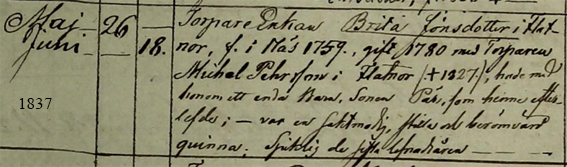 Maj. 26 Torpare Enkan Brita Jönsdotter i Flat-
Juni 18. nor, f. i Nås 1759., gift 1780 med Torparen
Michel Pehrsson i Flatnor (+1827.), hade med
honom ett enda Barn, Sonen Pär, som henne efter-
1837
lefde; – var en saktmodig, och berömvärd
quinna; Sjuklig de sista lefnadsåren